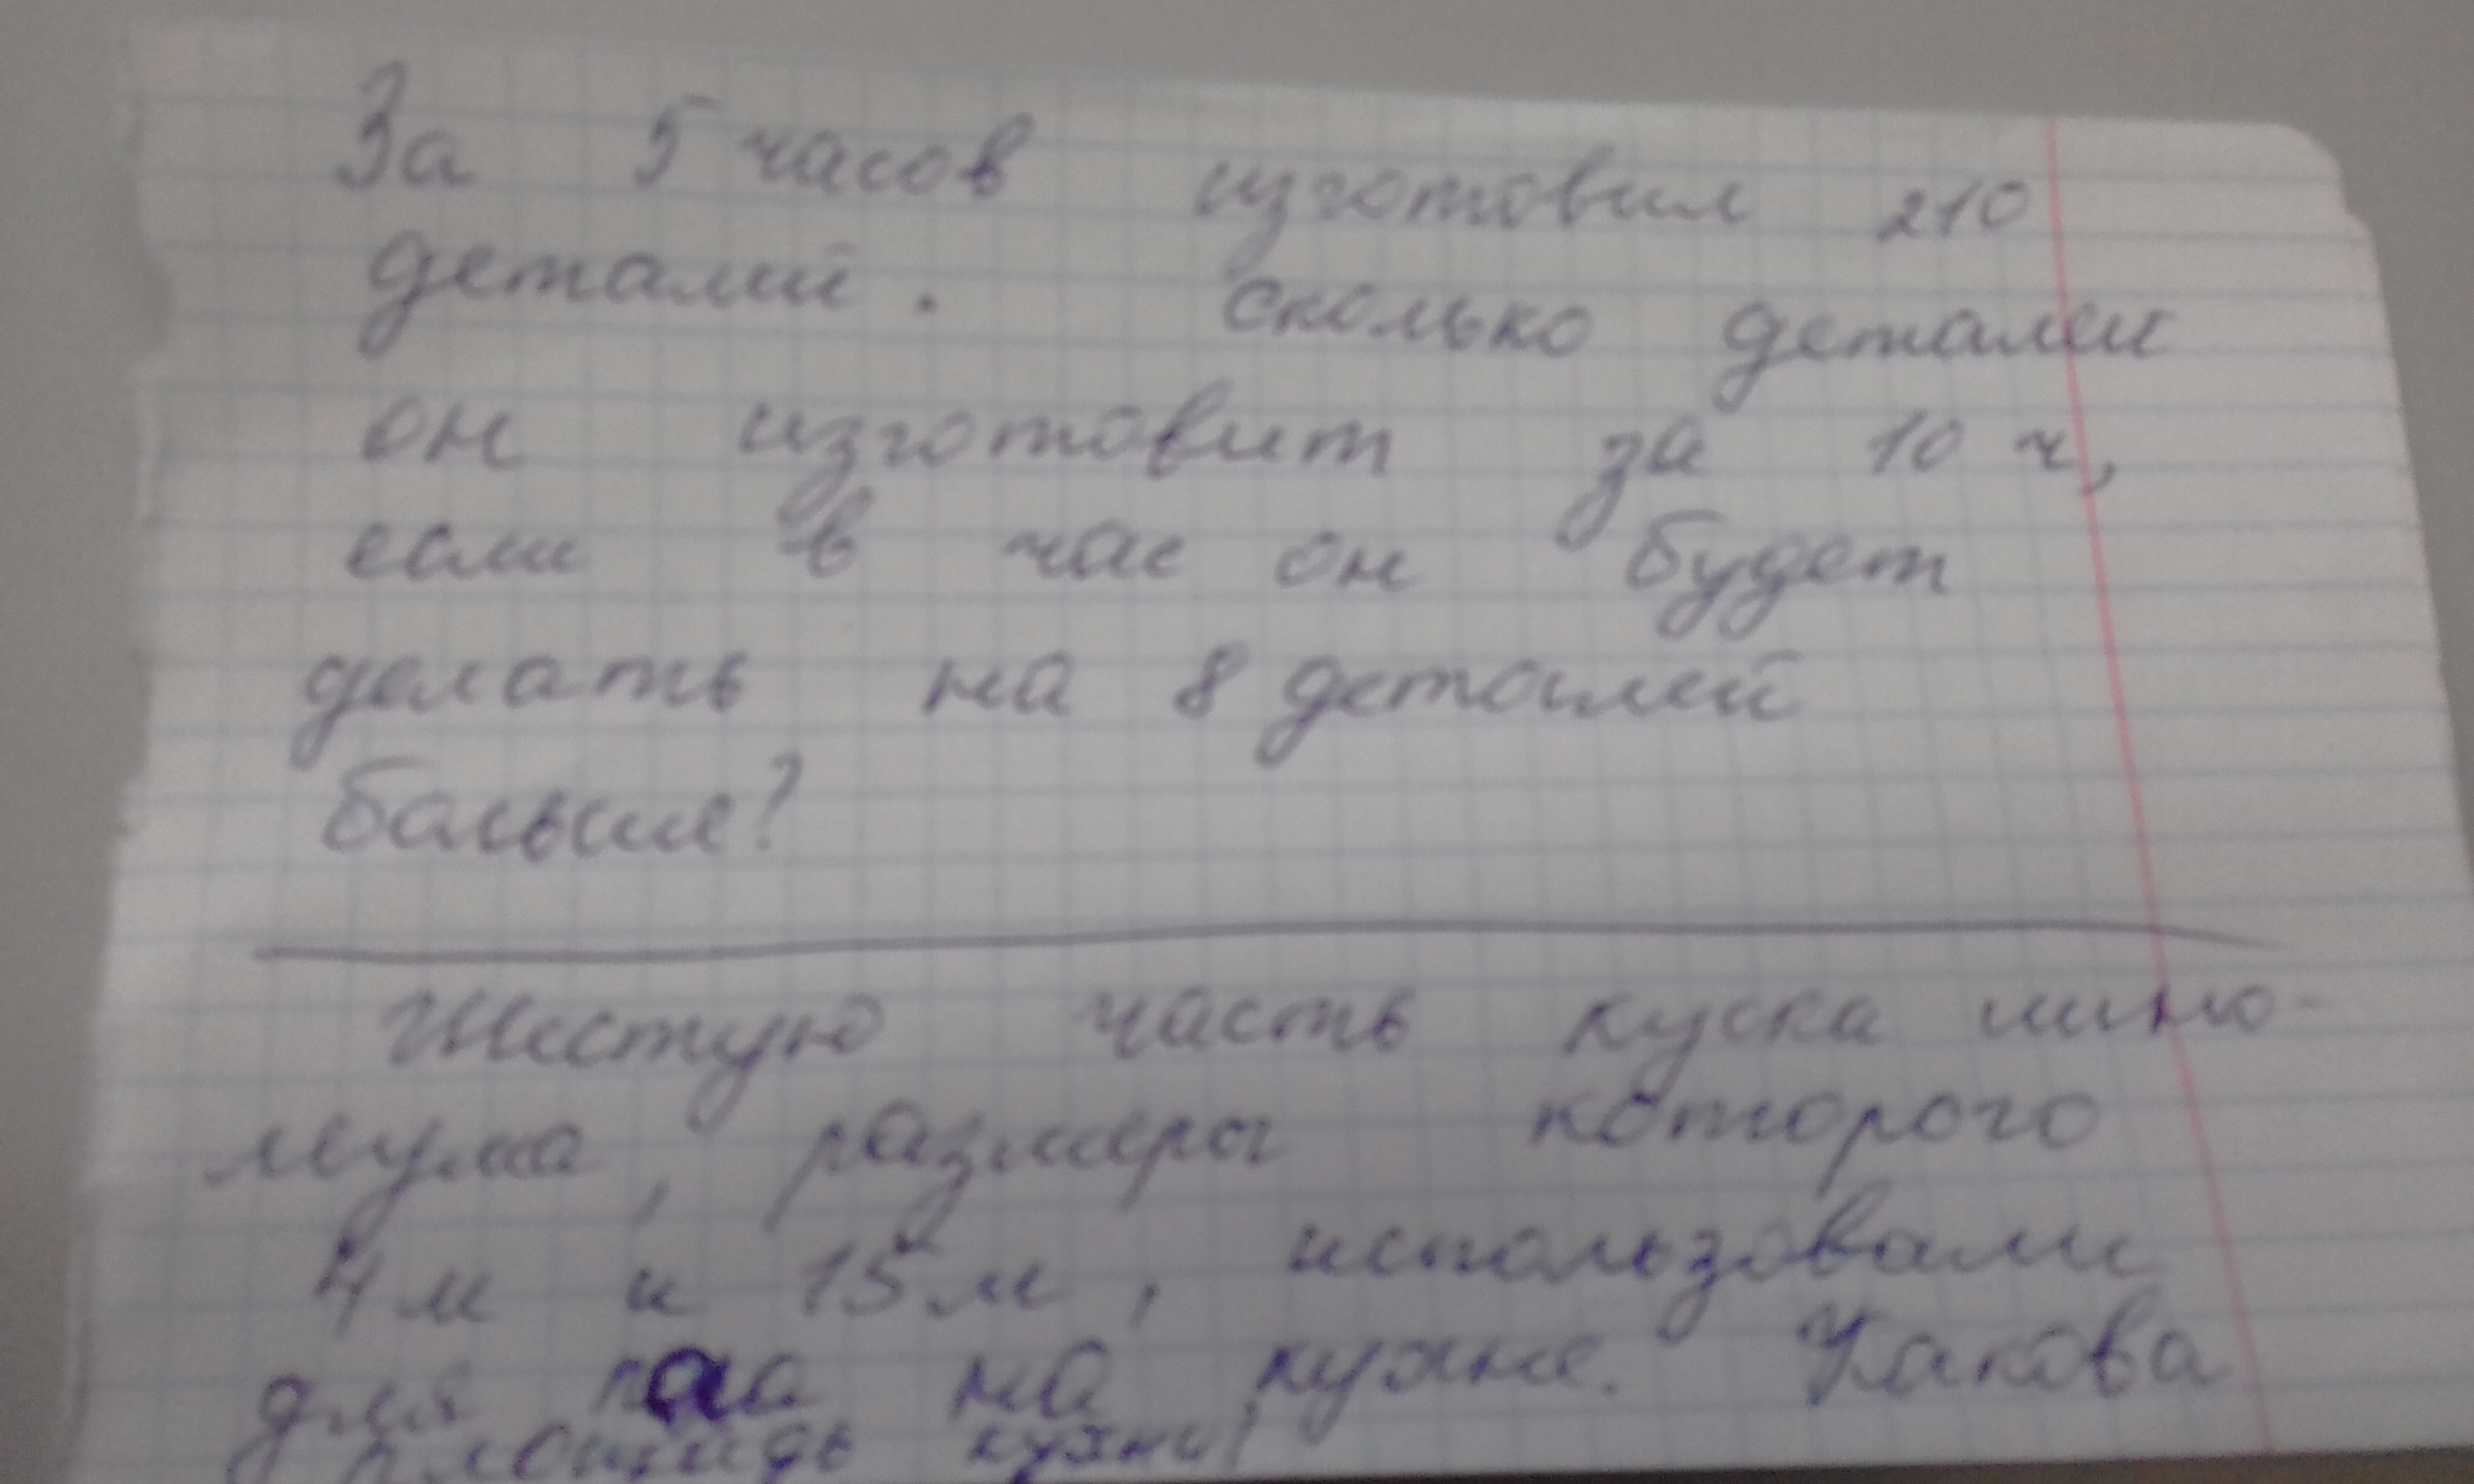 За 5 часов изготовил 210
деталей. Сколько деталей
он изготовит за 10 ч,
если в час он будет
делать на 8 деталей
больше?
Шестую часть куска лино-
леума, размеры которого
4м и 15м, использовали
для на кухне. Какова
площадь кухни?